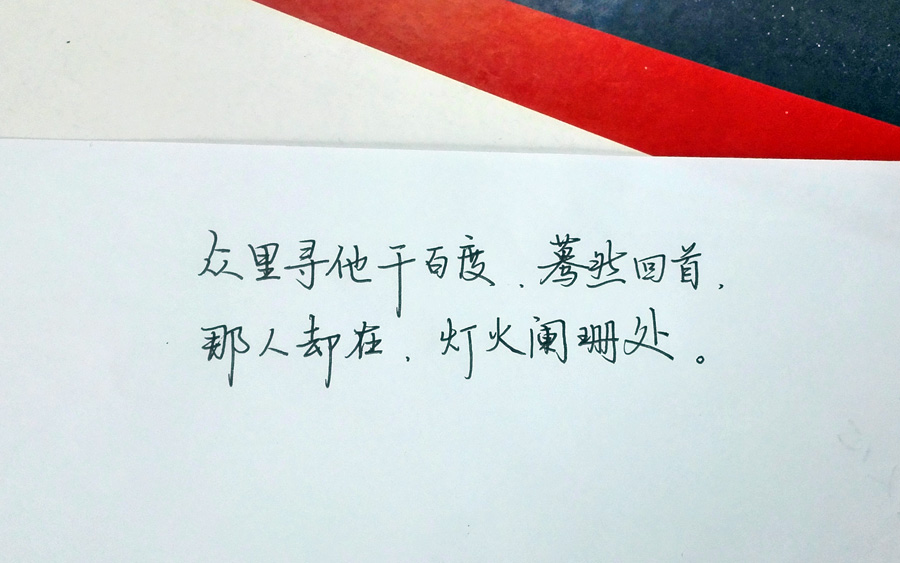 众里寻他千百度,蓦然回首,
那人却在,灯火阑珊处。